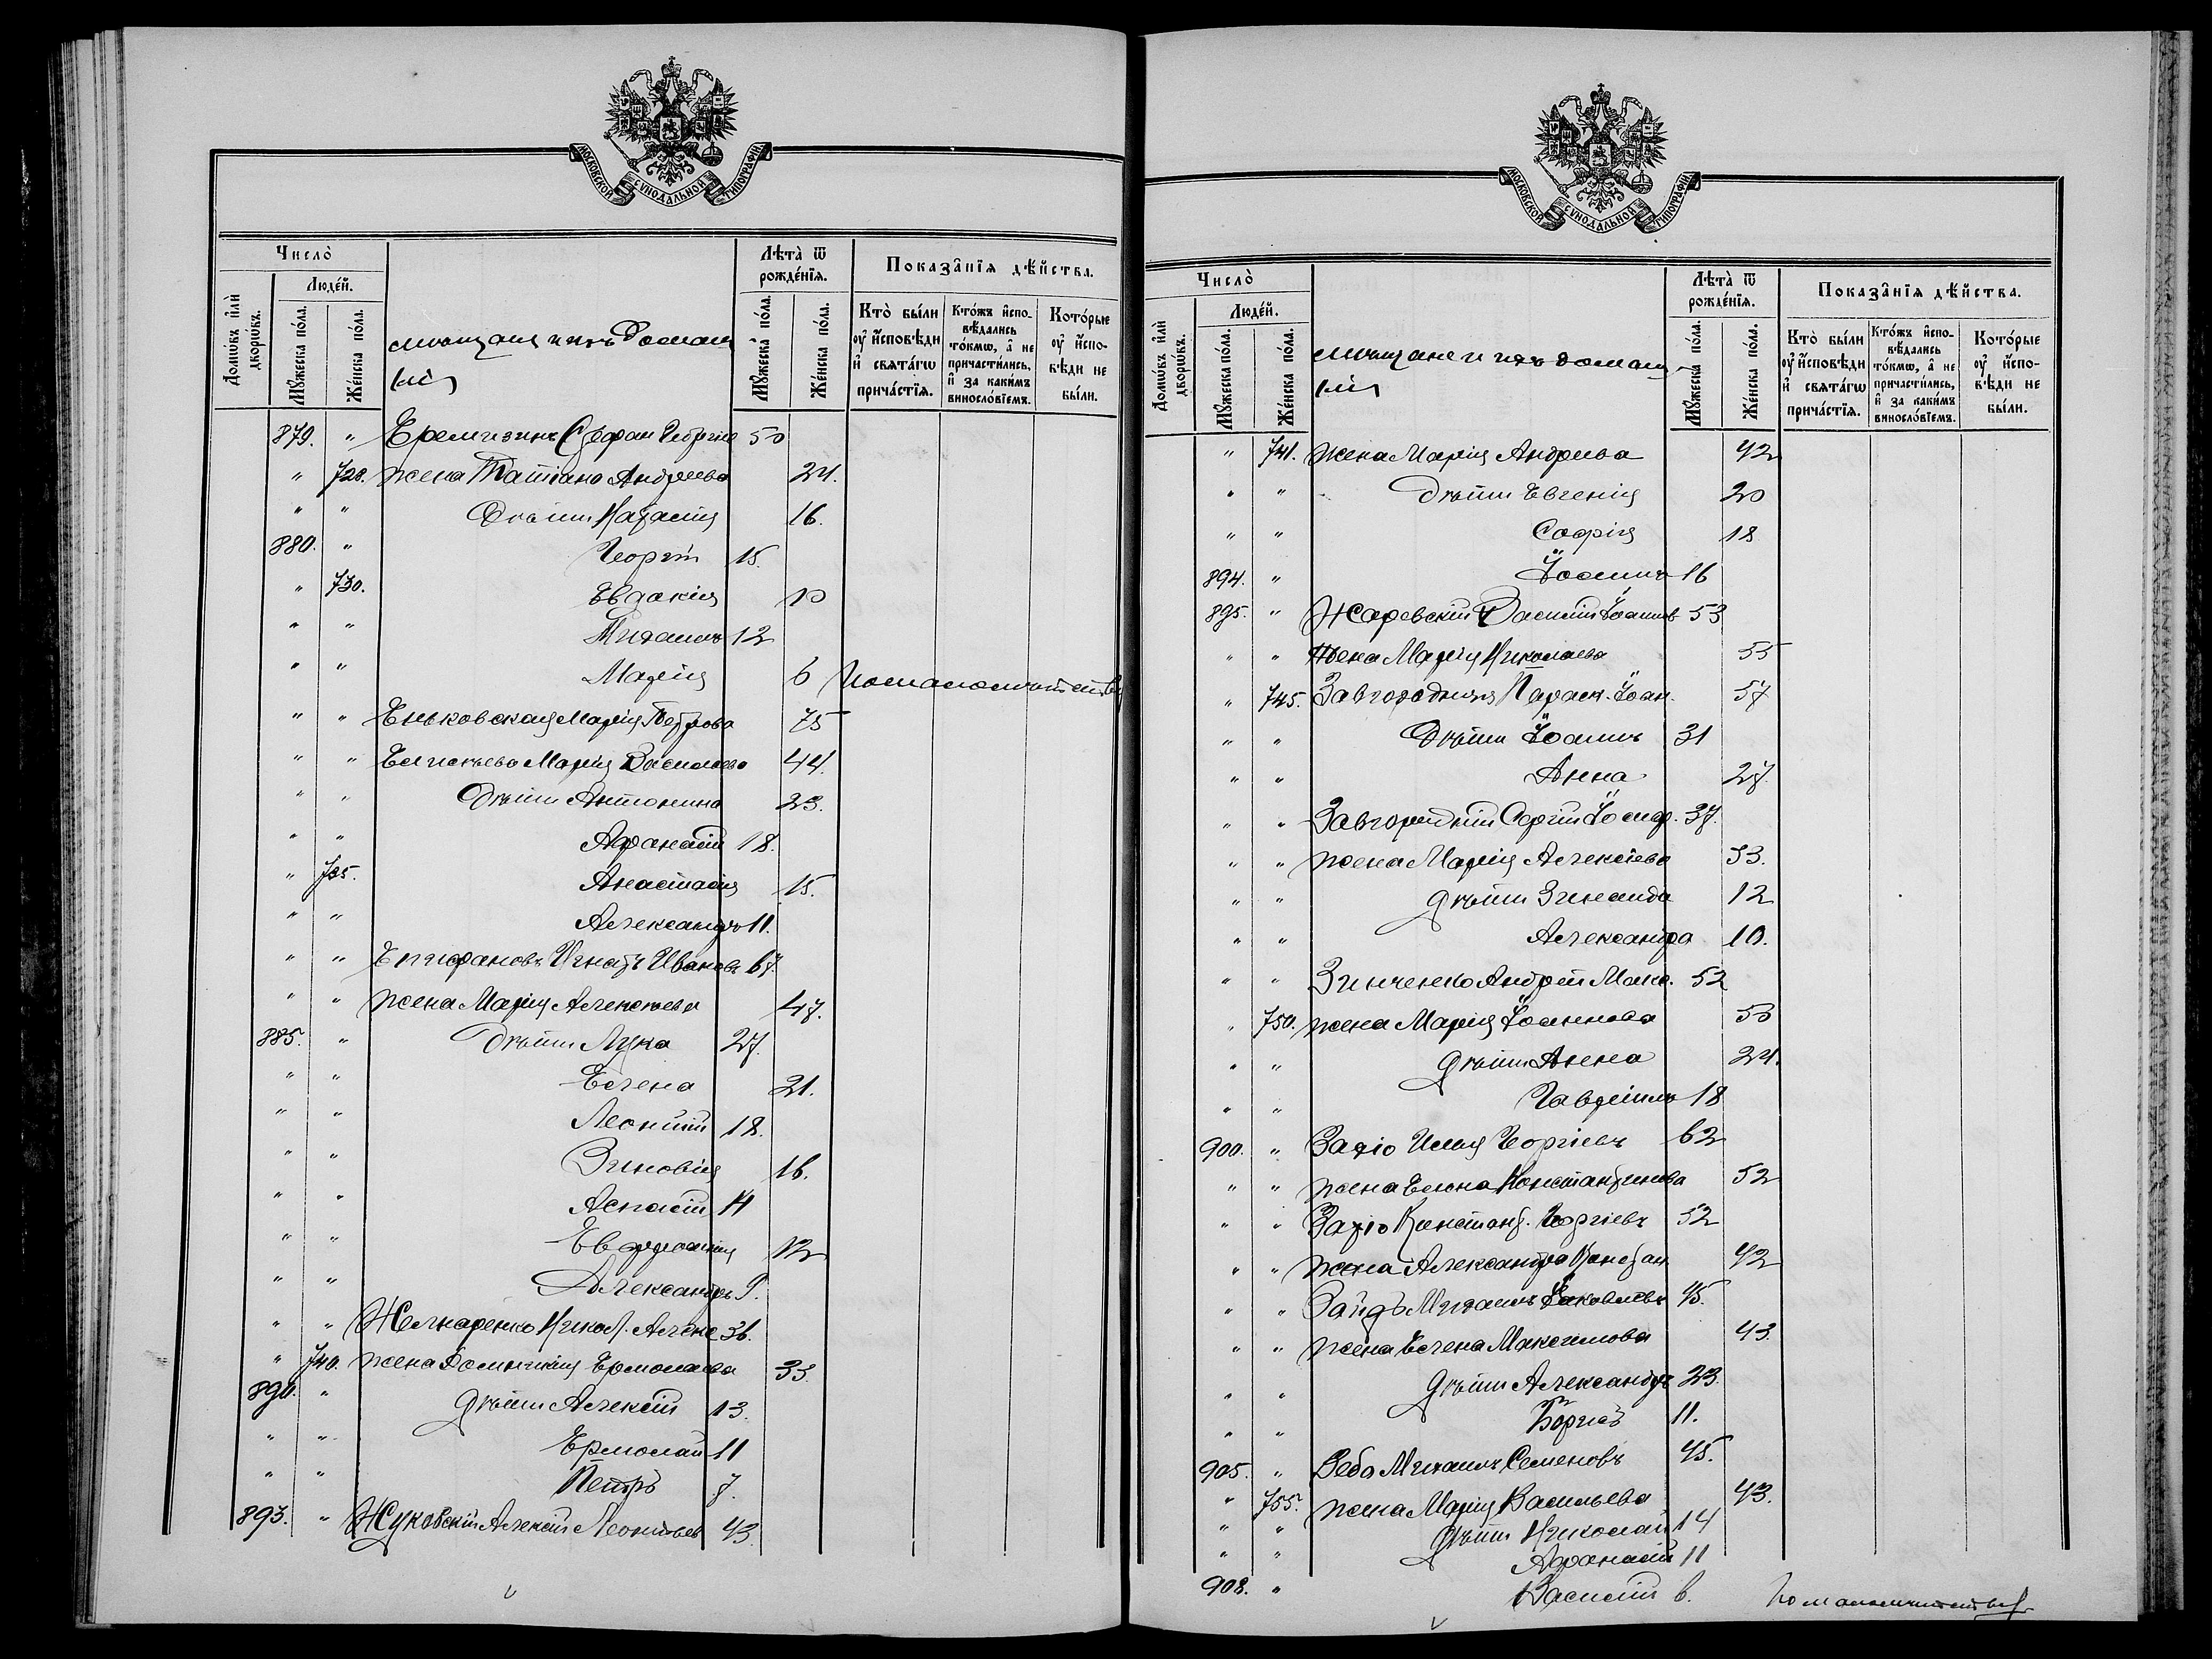 МОСКОВСКОЙ СѴНОДАЛЬНОЙ ТИПОГРАФІИ
Число̀
Домѡвъ и҆лѝ дворѡвъ.
Люде́й.
Мꙋ́жеска по́ла.
Же́нска по́ла.
мѣщане и ихъ домаш
ніе
Лѣта̀ ѿ рожде́нїѧ.
Мꙋ́жеска по́ла.
Же́нска по́ла.
Показа̑нїѧ дѣ́йства.
Кто̀ бы́ли оу҆ и҆спо́вѣди и҆ свѧта́гѡ прича́стїѧ.
Кто́жъ и҆спо-вѣ́дались то́кмѡ, а҆ не причасти́лись, и҆ за каки́мъ винослові́емъ.
Кото́рые оу҆ и҆спо-вѣди не бы́ли.
879. " Еремизинъ Стефан Георгіе 50
" 728. жена Татіана Андреева 24.
" " Дѣти 16.
880. " Георгій 15.
" 730. Евдокія 10
" " Михаилъ 12
" " Марія 6 По малолѣтству
" " Еньковская Марія Петрова 75
" " Елисѣева Марія Васильева 44.
" " Дѣти Антонина 23.
" " Афанасій 18.
" 735. Анастасія 15.
" " Александръ 11.
" " Епифановъ Игнатъ Ивановъ 67.
" " жена Марія Алексѣева 47.
885. " Дѣти Лука 27.
" " Елена 21.
" " Леонтій 18.
" " Зиновія 16.
" " 14
" " Евфросинія 12
" " Александръ 9.
" " Желнаренко Никол. Алекс 36.
" 740. жена Домникія Ермолаева 33
890. " Дѣти Алексій 13.
" " Ермолай 11
" " Петръ 7.
893. " Жуковскій Алексій Леонтьев 43
МОСКОВСКОЙ СѴНОДАЛЬНОЙ ТИПОГРАФІИ
Число̀
Домѡвъ и҆лѝ дворѡвъ.
Люде́й.
Мꙋ́жеска по́ла.
Же́нска по́ла.
мѣщане и ихъ домаш
ніе
Лѣта̀ ѿ рожде́нїѧ.
Мꙋ́жеска по́ла.
Же́нска по́ла.
Показа̑нїѧ дѣ́йства.
Кто̀ бы́ли оу҆ и҆спо́вѣди и҆ свѧта́гѡ прича́стїѧ.
Кто́жъ и҆спо-вѣ́дались то́кмѡ, а҆ не причасти́лись, и҆ за каки́мъ винослові́емъ.
Кото́рые оу҆ и҆спо-вѣди не бы́ли.
" 741. жена Марія Андреева 42
" " Дѣти Евгенія 20
" " Софія 18
894. " Іоаннъ 16
895. " Жаревскій Василій Іоаннов 53
" " Жена Марія Николаева 55
" 745. Завгородняя Параск. Іоан. 57
" " Дѣти Іоаннъ 31
" " Анна 27.
" " Завгородній Сергій Іосиф. 37.
" " жена Марія Алексіева 33.
" " дѣти Зинаида 12
" " Александра 10.
" " Зинченко Андрей Макс. 52
" 750. жена Марія Іоаннова 50
" " дѣти Анна 24.
" " Гавріилъ 18
900. " Захіо Илья Георгіевъ 62
" " жена Елена Константинова 52
" " Захіо Констант. Георгіевъ 52
" " жена Александра Констан 42
" " Михаилъ Іаковлевъ 45.
" " жена Елена Максимова 43
" " дѣти Александръ 23.
" " Борисъ 11.
905. " Зебо Михаилъ Семеновъ 45.
" 755. жена Марія Васильева 43.
" " дѣти Николай 14
" " Афанасій 11
908. " Василій 6. По малолѣтству